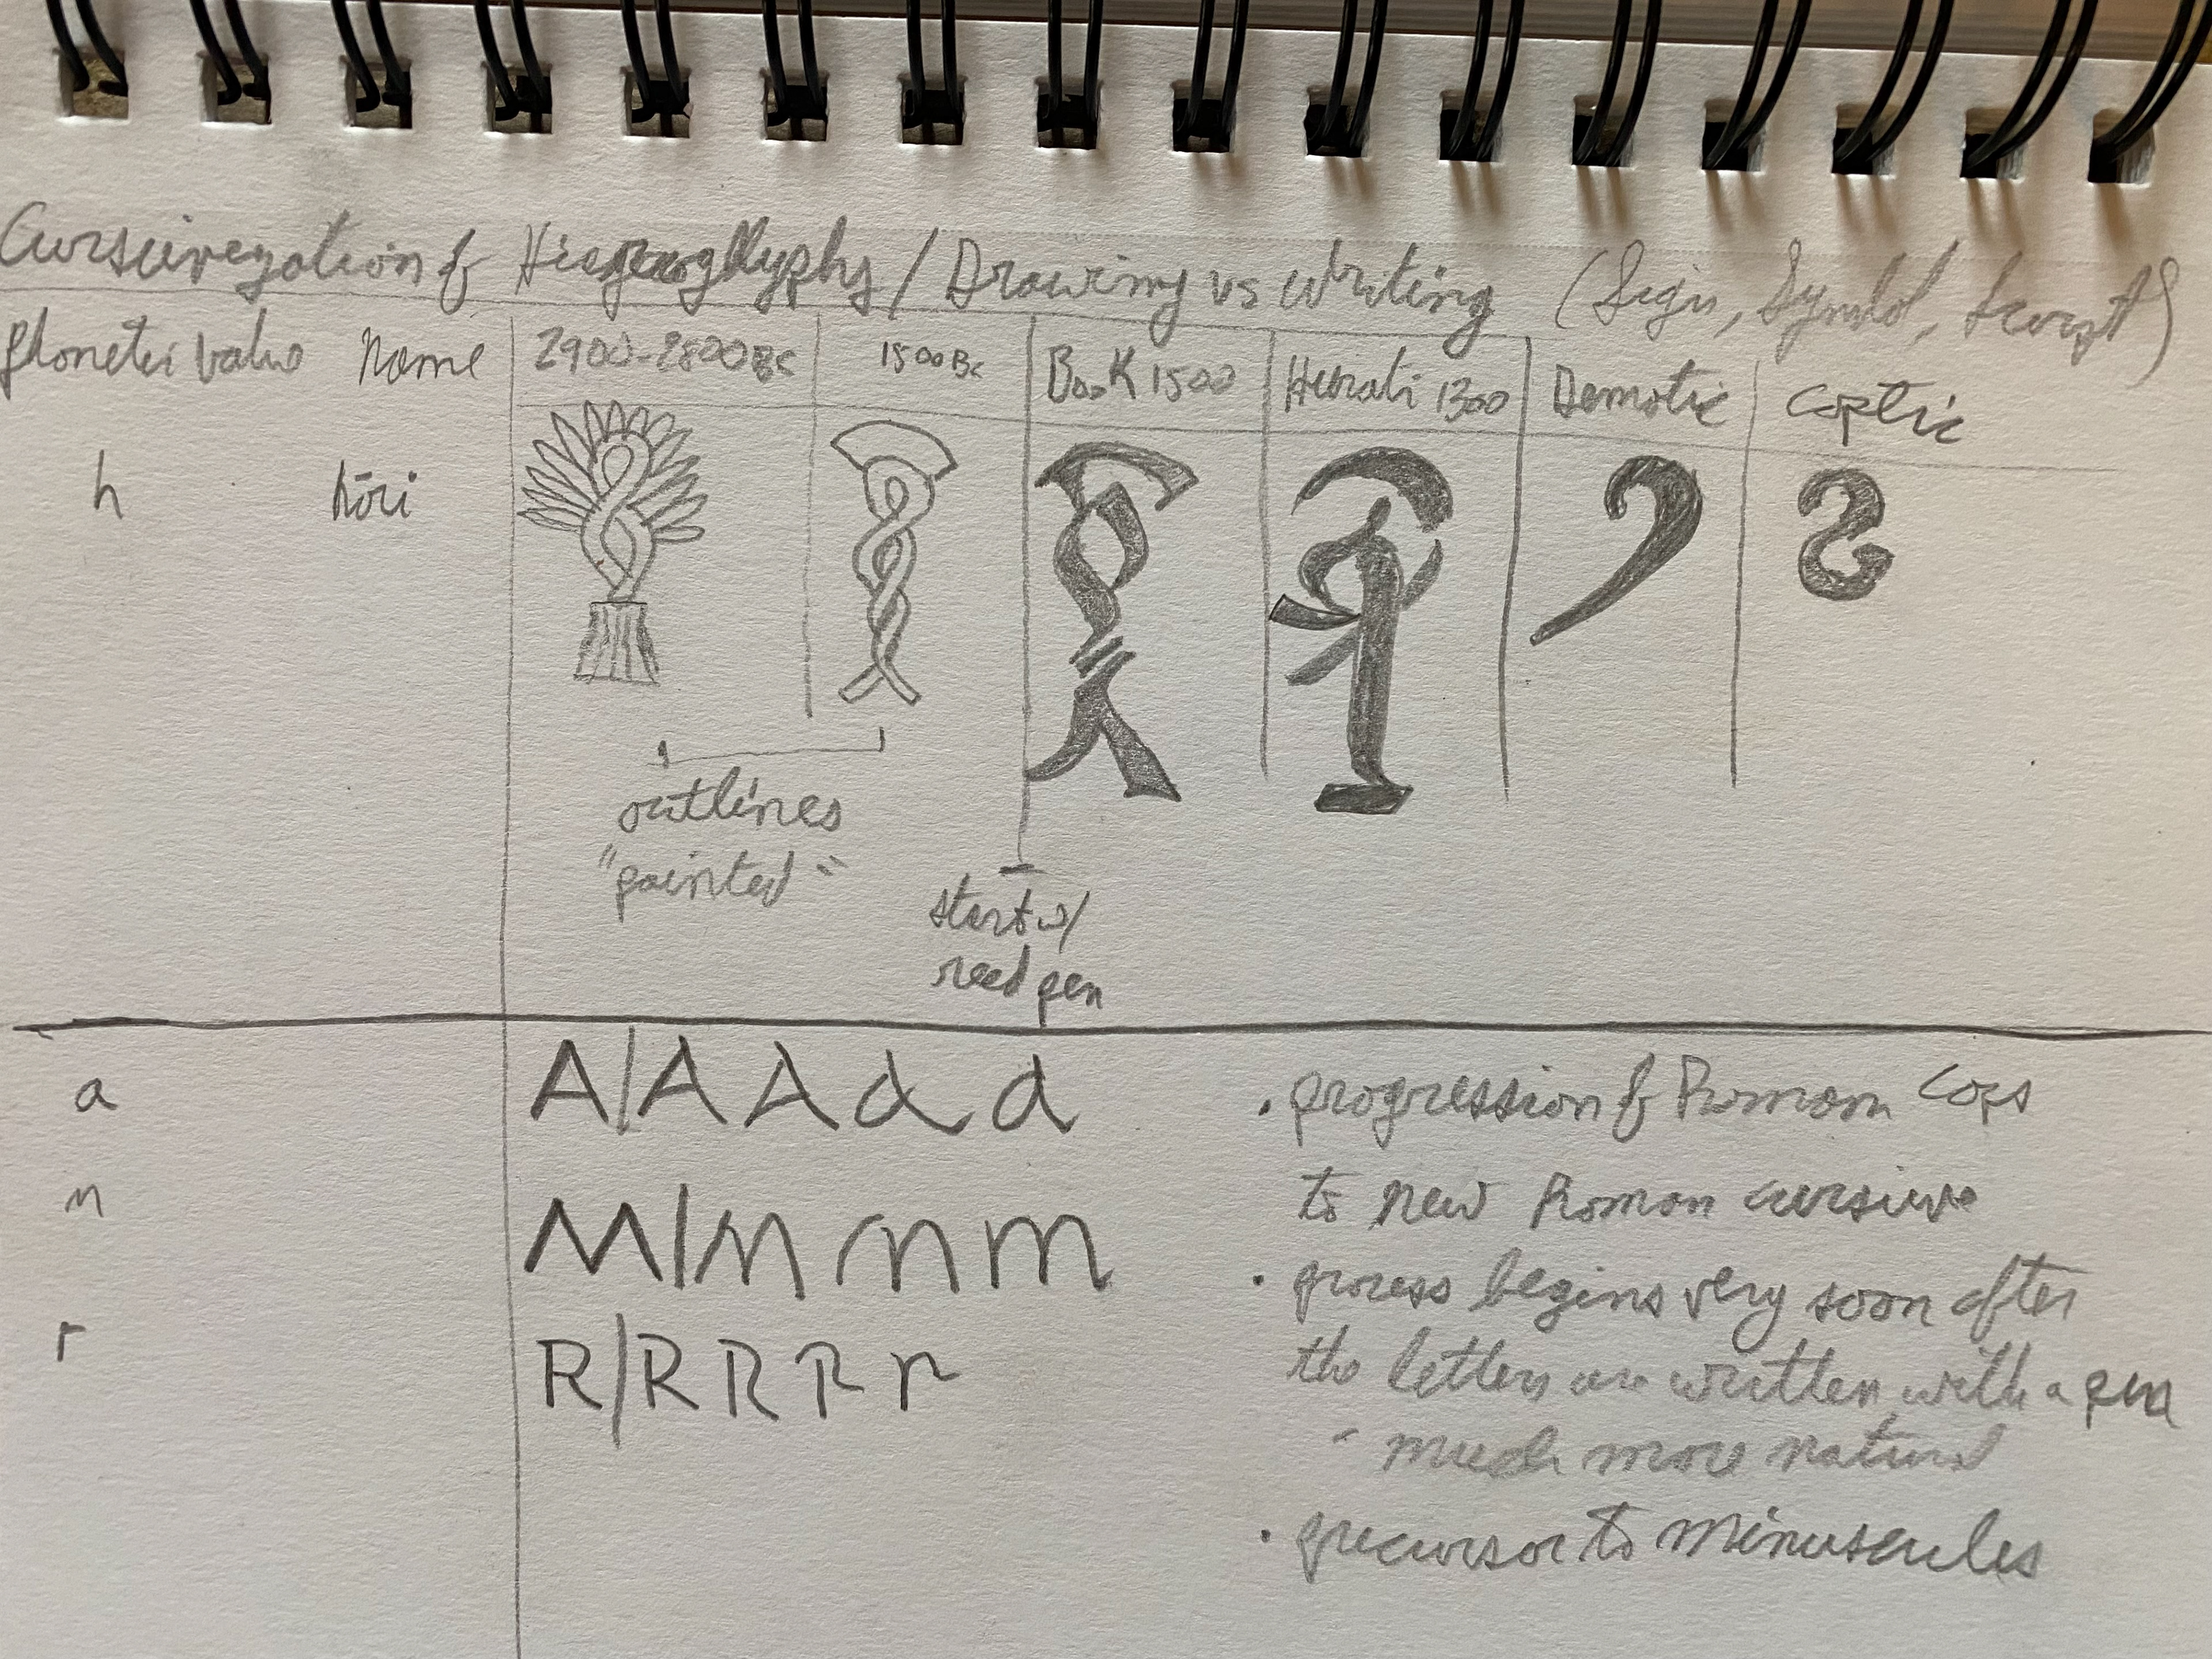 Cursivezation of Hieroglyphs / Drawing vs writing (Sign, Symbol, Script)
Phonetic value Name 2900-2800BC 1500BC Book 1500 Hieratic 1300 Demotic Coptic
h hōri
outlines
"painted"
start w/
reed pen
a A/A A a a • progression of Roman Caps
m M/m m m to New Roman cursive
• process begins very soon after
r R/R R R r the letters are written with a pen
- much more natural
• precursor to minuscules